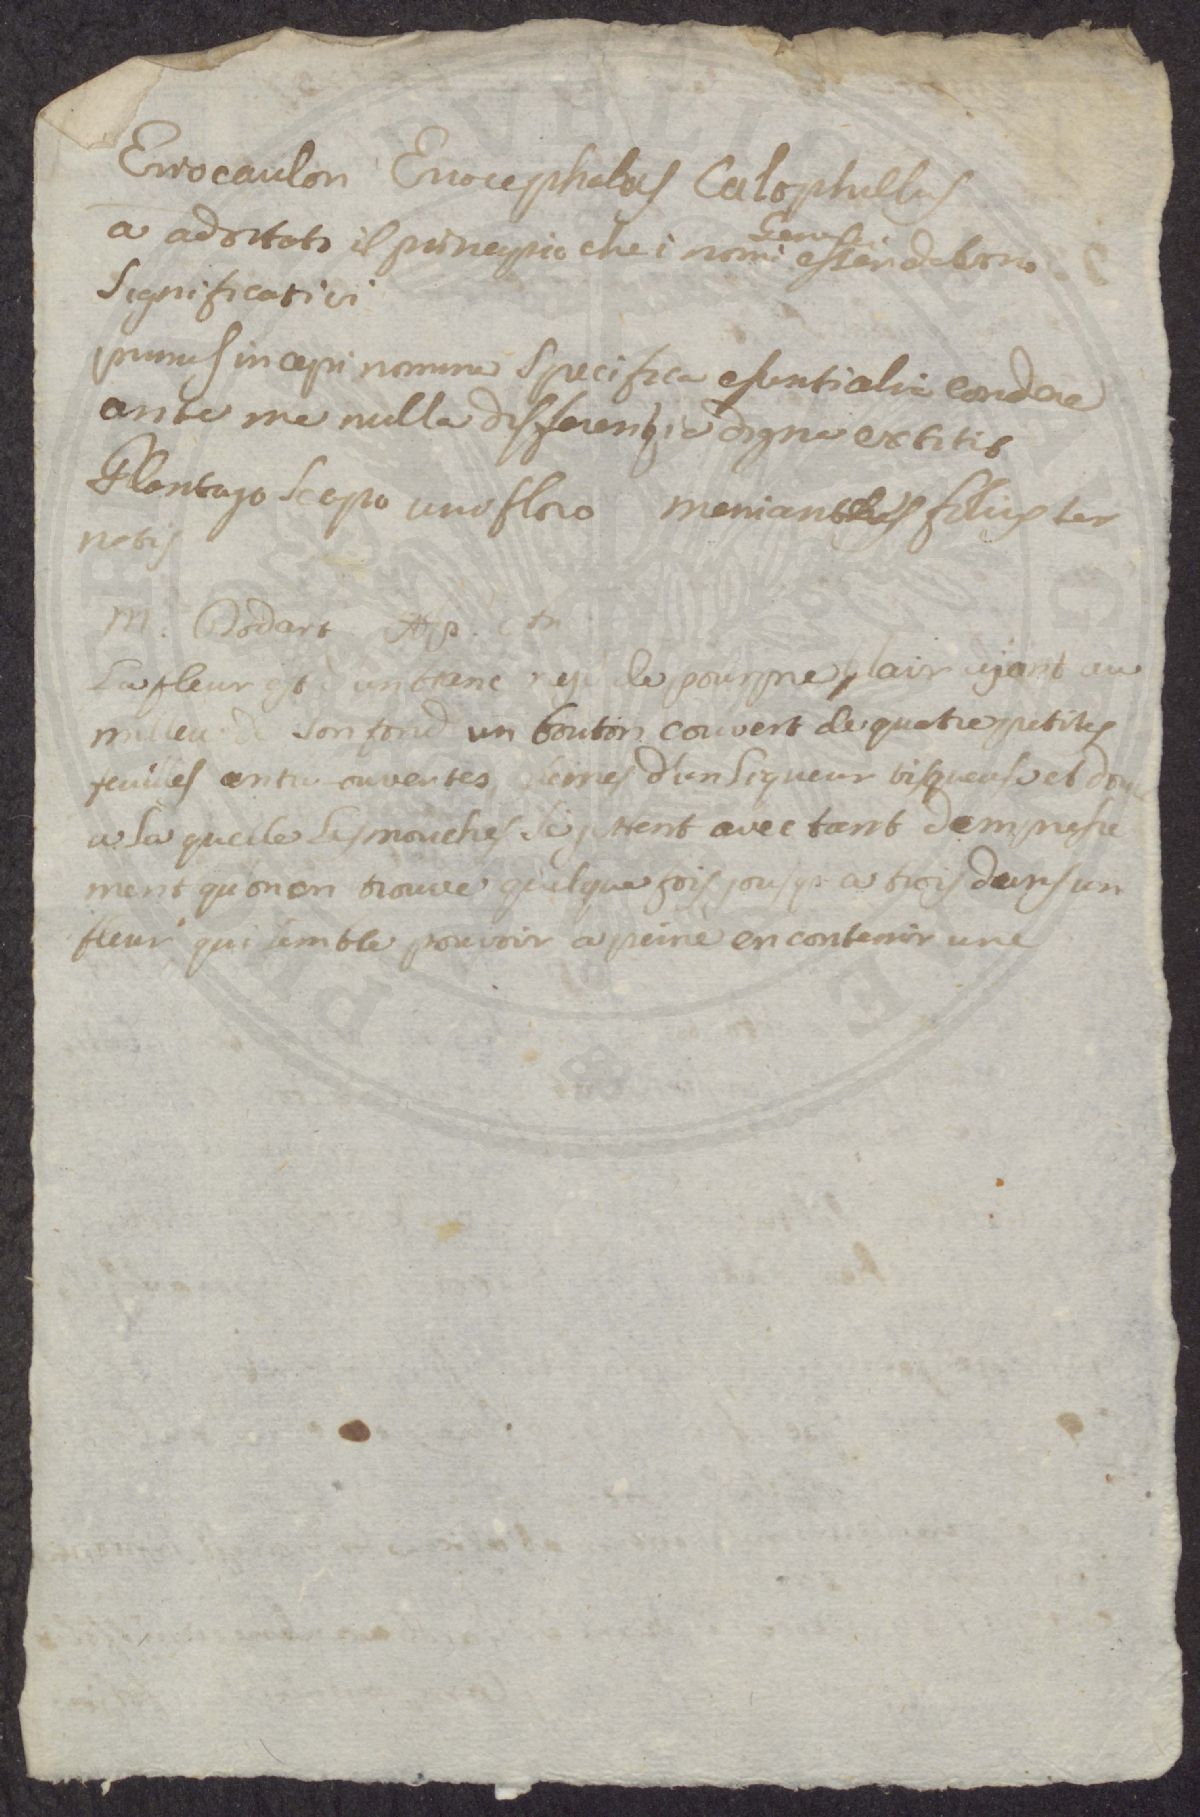 Eriocaulon Eriocephalus Calophillus
a adottato il principio che i nomi Generici esser debono
significativi
primus incepi nomina Specifica essentialia condere
ante me nulla differentia digna extitit
Plantago scapo unifloro menianthes foliis ter
natis
M. Dodart
La fleur est d'un blanc de pourpre clair ajant au
milieu de son fond un bouton couvert de quatre petites
feuilles ouvertes pleines d'un liqueur visqueuse et douce
a la quelle les mouches se jettent avec tant d'empresse
ment qu'on en trouve quelque fois jousqu a trois dans un
fleur qui semble pouvoir a peine en contenir une